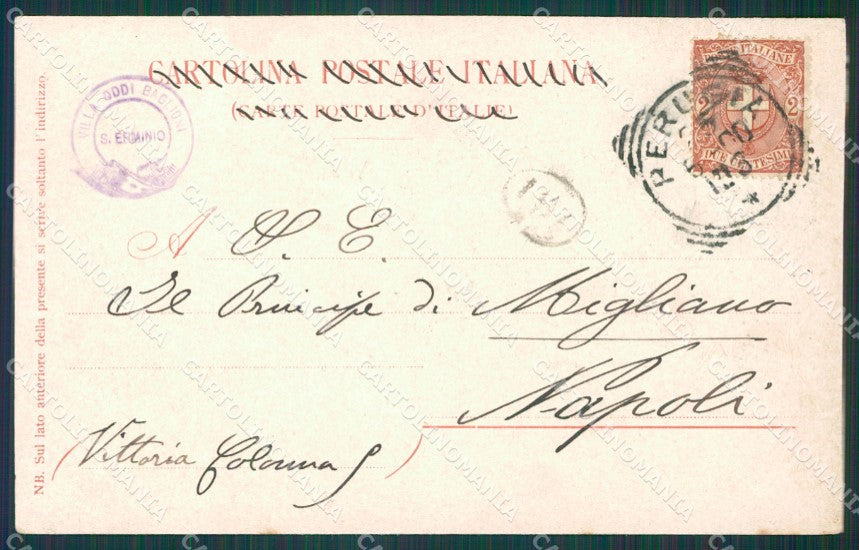 CARTOLINA POSTALE ITALIANA
(CARTE POSTALE D'ITALIE)
VILLA ODDI BAGLIONI
S. ERMINIO
POSTE ITALIANE
2 2
DUE CENTESIMI
PERUGIA
A S. E.
Il Principe di Migliano
Napoli
(Vittoria Colonna)
NB. Sul lato anteriore della presente si scrive soltanto l'indirizzo.
CARTOLINOMANIA